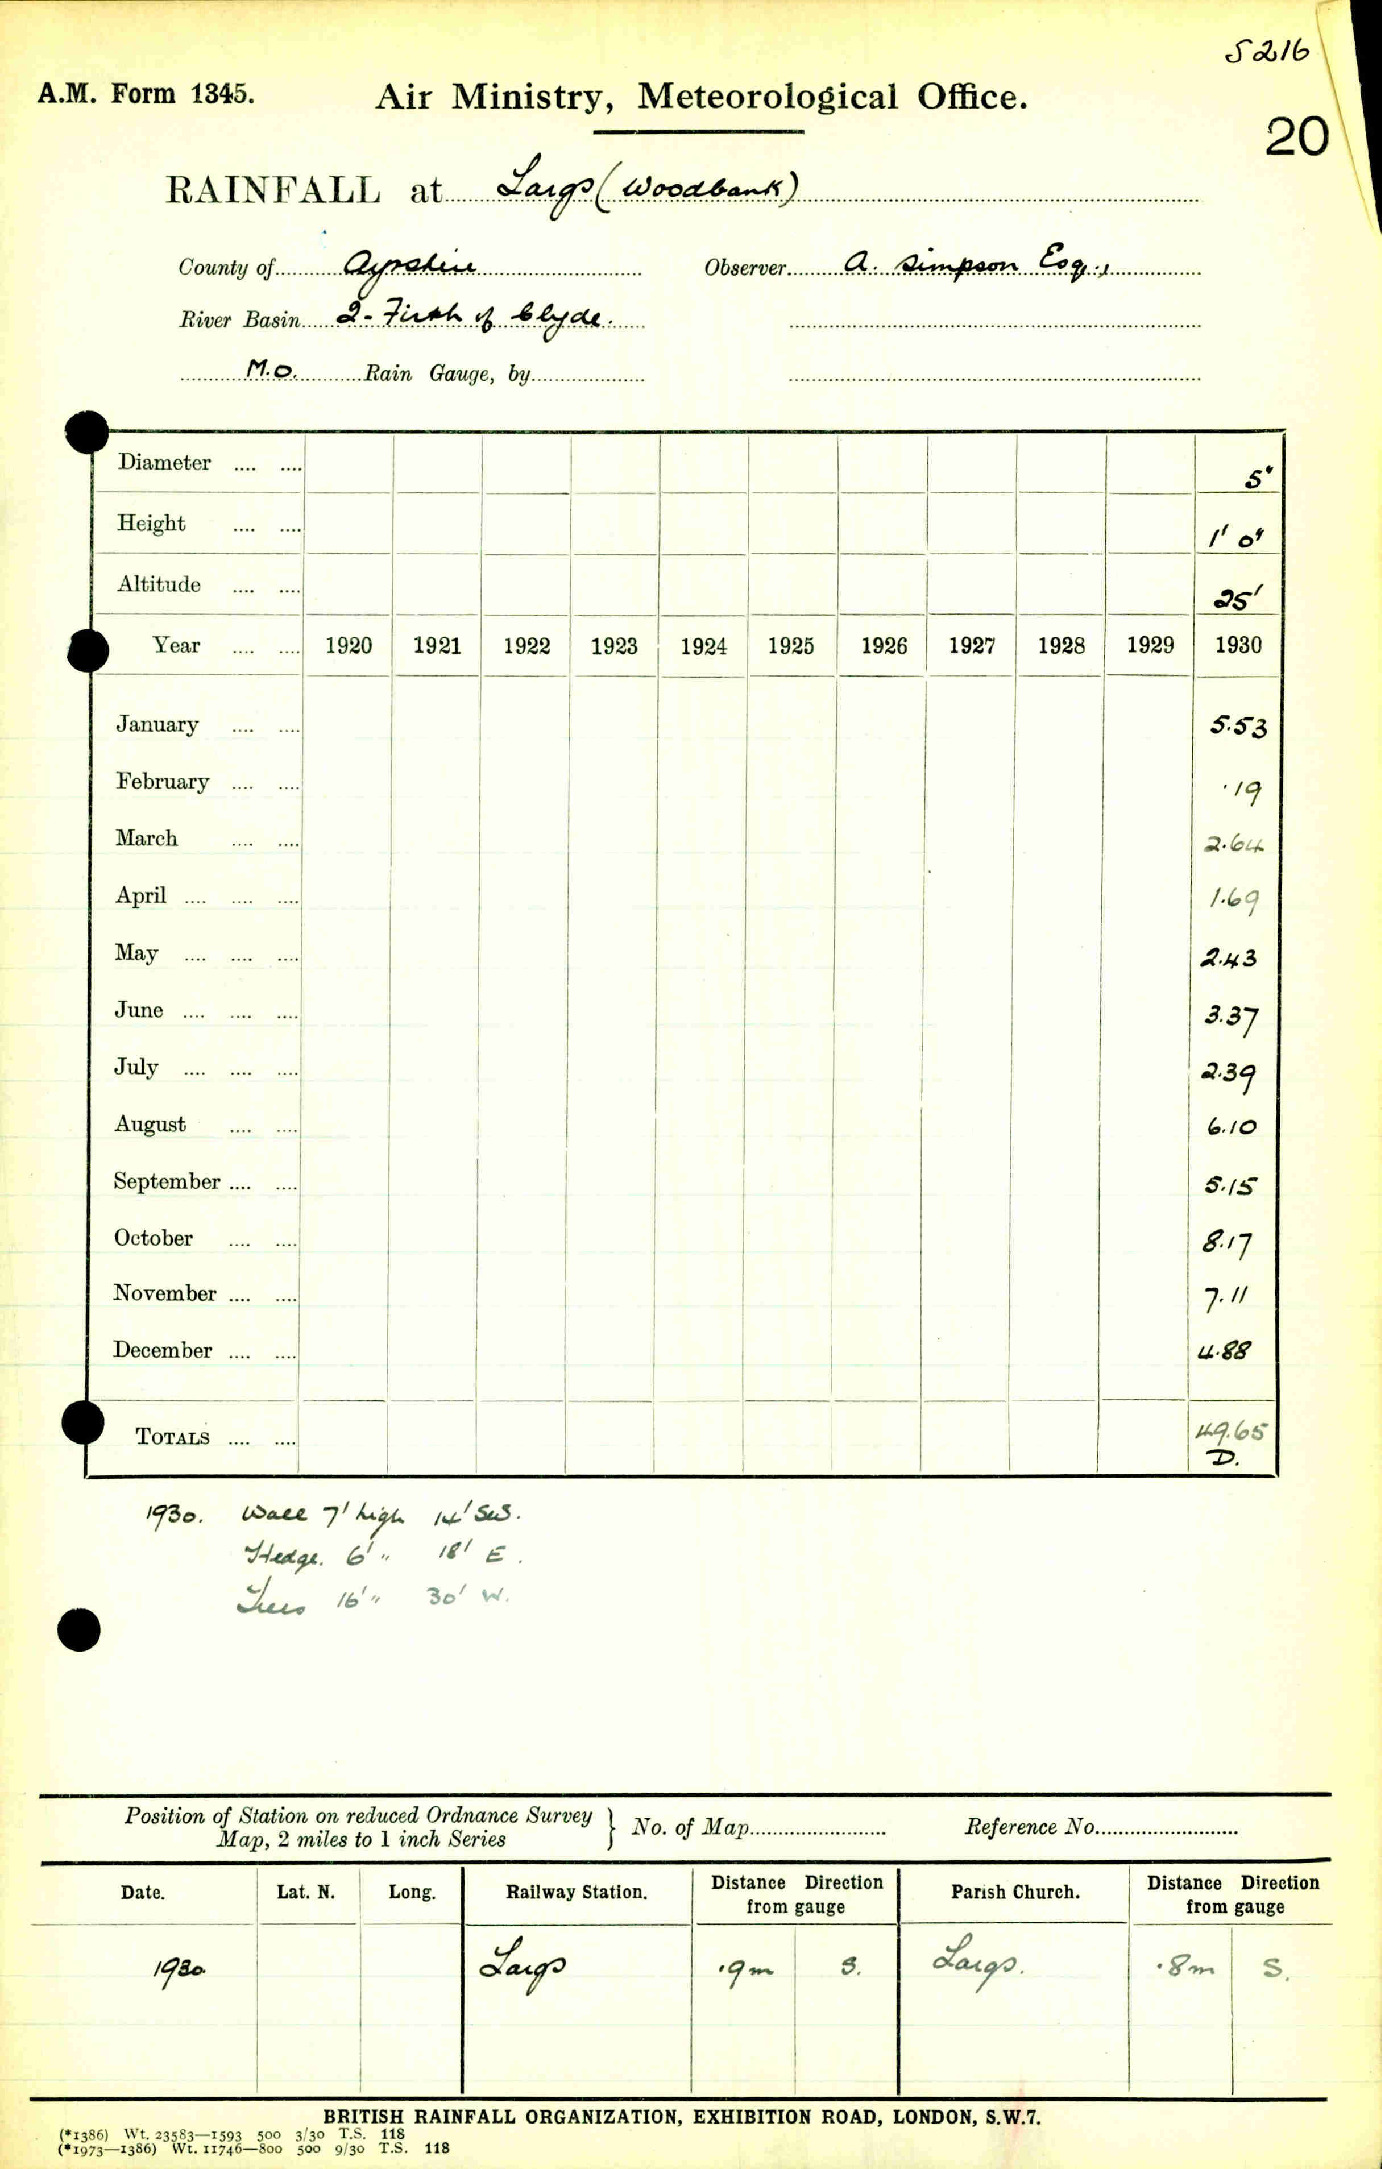 5216
A.M. Form 1345. Air Ministry, Meteorological Office.
20
RAINFALL at Largs (Woodbank)
County of Ayrshire Observer A. Simpson Esq.,
River Basin 2- Firth of Clyde.
M.O. Rain Gauge, by
Diameter .... .... 5"
Height .... .... 1' 0"
Altitude .... .... 25'
Year .... .... 1920 1921 1922 1923 1924 1925 1926 1927 1928 1929 1930
January .... .... 5.53
February .... .... .19
March .... .... 2.64
April .... .... .... 1.69
May .... .... .... 2.43
June .... .... .... 3.37
July .... .... .... 2.39
August .... .... 6.10
September .... .... 5.15
October .... .... 8.17
November .... .... 7.11
December .... .... 4.88
TOTALS .... .... 49.65
D.
1930. Wall 7' high 14' SW.
Hedge. 6' " 18' E.
Trees 16' " 30' W.
Position of Station on reduced Ordnance Survey
Map, 2 miles to 1 inch Series } No. of Map Reference No.
Date. Lat. N. Long. Railway Station. Distance Direction from gauge Parish Church. Distance Direction from gauge
1930 Largs .9m S. Largs. .8m S.
BRITISH RAINFALL ORGANIZATION, EXHIBITION ROAD, LONDON, S.W.7.
(*1386) Wt. 23583—1593 500 3/30 T.S. 118
(*1973—1386) Wt. 11746—800 500 9/30 T.S. 118